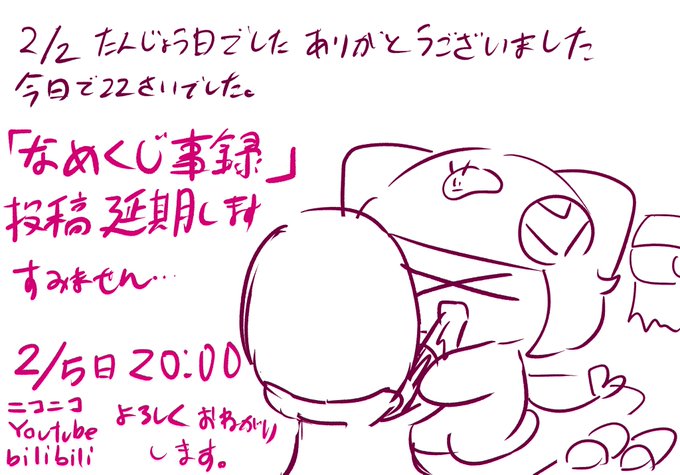 2/2 たんじょう日でした ありがとうございました
今日で22さいでした。
「なめくじ事録」
投稿延期します
すみません…
2/5日 20:00
ニコニコ
Youtube
bilibili
よろしくおねがい
します。